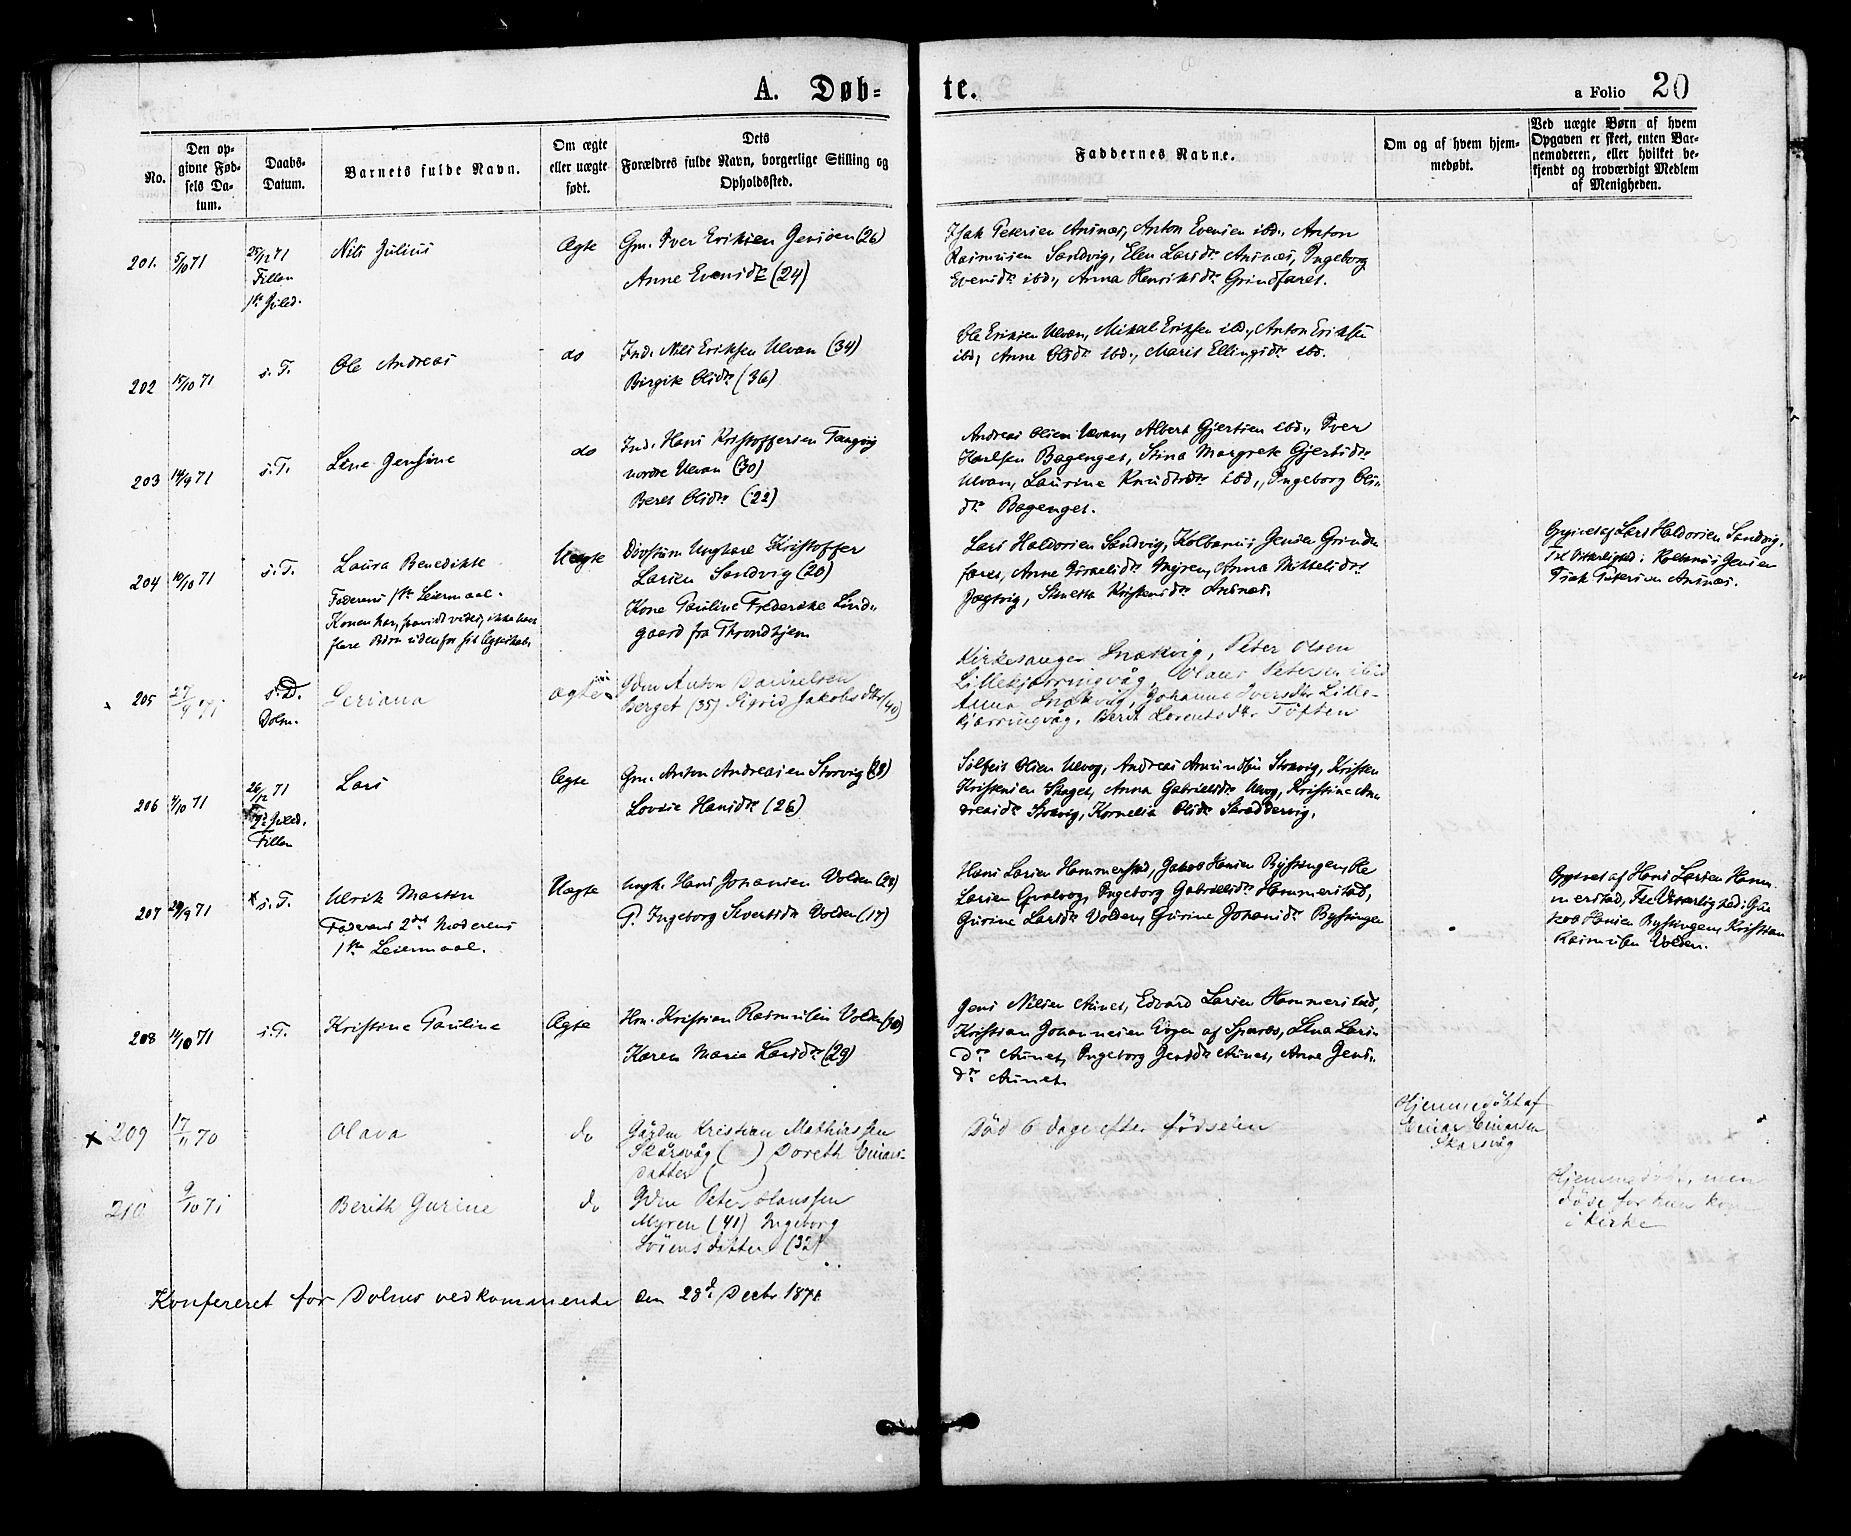 A. Døb-
te.
a Folio 20
No.
Den op-
givne Fød-
sels Da-
tum.
Daabs-
Datum.
Barnets fulde Navn.
Om ægte
eller uægte
født.
Dets
Forældres fulde Navn, borgerlige Stilling og
Opholdssted.
Faddernes Navne.
Om og af hvem hjem-
medøbt.
Ved uægte Børn af hvem
Opgaven er skeet, enten Bar-
nemoderen, eller hvilket be-
kjendt og troværdigt Medlem
af Menigheden.
201. 5/10 71
25/12 71
Fillan
1ste Juled.
Nils Julius
Ægte
Gm. Iver Eriksen Jensøen (26)
Anne Evensdtr (24)
Isak Petersen Ansnæs, Anton Evensen ibd., Anton
Rasmusen Sandvig, Elen Larsdtr Ansnæs, Ingeborg
Evensdtr ibd., Anna Henriksdtr Grindfaret.
202 15/10 71
s. T.
Ole Andreas
do
Ind. Nils Eriksen Ulvan (34)
Birgite Olsdtr (36)
Ole Eriksen Ulvan, Mikal Eriksen ibd., Anton Eriksen
ibd., Anne Olsdtr ibd., Marit Ellingsdtr ibd.
203 14/9 71
s. T.
Line Jensine
do
Ind. Hans Kristoffersen Tangvig
nordre Ulvan (30)
Beret Olsdtr (22)
Andreas Olsen Ulvan, Albert Gjertsen ibd., Iver
Karlsen Bagenget, Stina Margrete Gjertsdtr
Ulvan, Laurine Knudsdtr ibd., Ingeborg Ols-
dtr Bagenget.
204 10/10 71
s. T.
Laura Benedikte
Faderens 1ste Leiermaal.
Konen har, saavidt vides, ikke havt
flere Børn udenfor sit Ægteskab.
Uægte
Ungkarl Kristoffer
Larsen Sandvig (20)
Kone Pauline Frederikke Lind-
gaard fra Throndhjem
Lars Haldorsen Sandvig, Kolbanus Jensen Grind-
faret, Anne Israelsdtr Myren, Anna Mikkelsdtr
Jægtvig, Kristensdtr Ansnæs.
Opgivet af Lars Haldorsen Sandvig.
Til Vitterlighed: Kolbanus Jensen
Isak Petersen Ansnæs.
205 27/9 71
s. D.
Dolm.
Seriana
ægte
Gdm Anton Danielsen
Berget (35) Sigrid Jakobsdtr (40)
Kirkesanger Snækvig, Peter Olsen
Lillekjærringvåg, Olaus Petersen ibid
Anna Snækvig, Johanna Iversdtr Lille-
kjærringvåg, Berit Lorentsdtr Töften
206 4/10 71
26/12 71
2d Juled.
Fillan
Lars
Ægte
Gm. Anton Andreasen Storvig (28)
Lovise Hansdtr (26)
Olsen Ulvog, Andreas Amundsen Storvig, Kristen
Kristensen Skaget, Anna Gabrielsdtr Ulvog, Kristine An-
dreasdtr Storvig, Kornelia Olsdtr Skreddervig.
207 29/9 71
s. T.
Ulrik Martin
Faderens 2det Moderens
1ste Leiermaal.
Uægte
Ungk. Hans Johansen Volden (28)
P. Ingeborg Sivertsdtr Volden (17)
Hans Larsen Hammerstad, Jakob Hansen Byssingen, Ole
Larsen Qvalvog, Ingeborg Gabrielsdtr Hammerstad,
Gurine Larsdtr Volden, Gurine Johansdtr Byssingen
Opgivet af Hans Larsen Ham-
merstad, Til Vitterlighed: Ja-
kob Hansen Byssingen, Kristian
Rasmusen Volden.
208 14/10 71
s. T.
Kristine Pauline
Ægte
Hm. Kristian Rasmusen Volden (30)
Karen Marie Larsdtr (29)
Jens Nilsen Aunet, Edvard Larsen Hammerstad,
Kristian Johannesen Vogen af Sparbo, Lina Lars-
dtr Aunet, Ingeborg Jensdtr Aunet, Anne Jens-
dtr Aunet.
x 209 17/11 70
Olava
do
Gårdm Kristian Mathiassen
Skårsvåg ( ) Doreth Einars-
datter ( )
Död 6 dage efter födselen
Hjemmedöbt af
Einar Einarsen
Skarsvåg
210 9/10 71
Berith Gurine
do
Gdm Peter Hanssen
Myren (41) Ingeborg
Sörensdatter (32)
Hjemmedöbt, men
döde för hun kom
i kirke
Konfereret for Dolms vedkommende den 28d Decbr 1871.